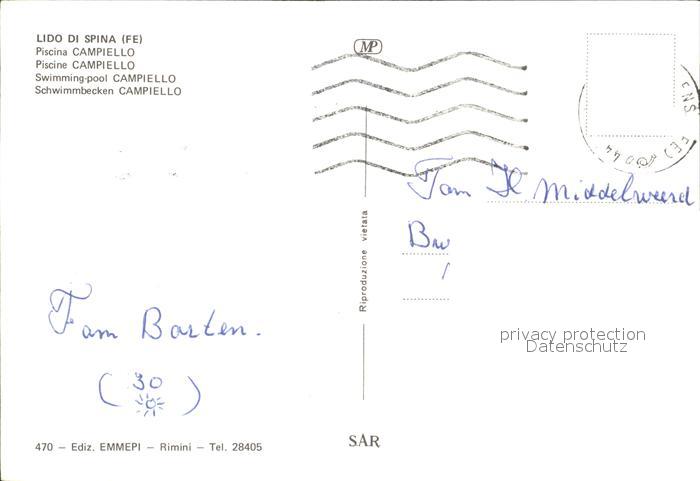 LIDO DI SPINA (FE)
Piscina CAMPIELLO
Piscine CAMPIELLO
Swimming-pool CAMPIELLO
Schwimmbecken CAMPIELLO
MP
Fam H. Middelweerd
Riproduzione vietata
privacy protection
Datenschutz
Fam Barten.
(30)
470 – Ediz. EMMEPI – Rimini – Tel. 28405
SAR